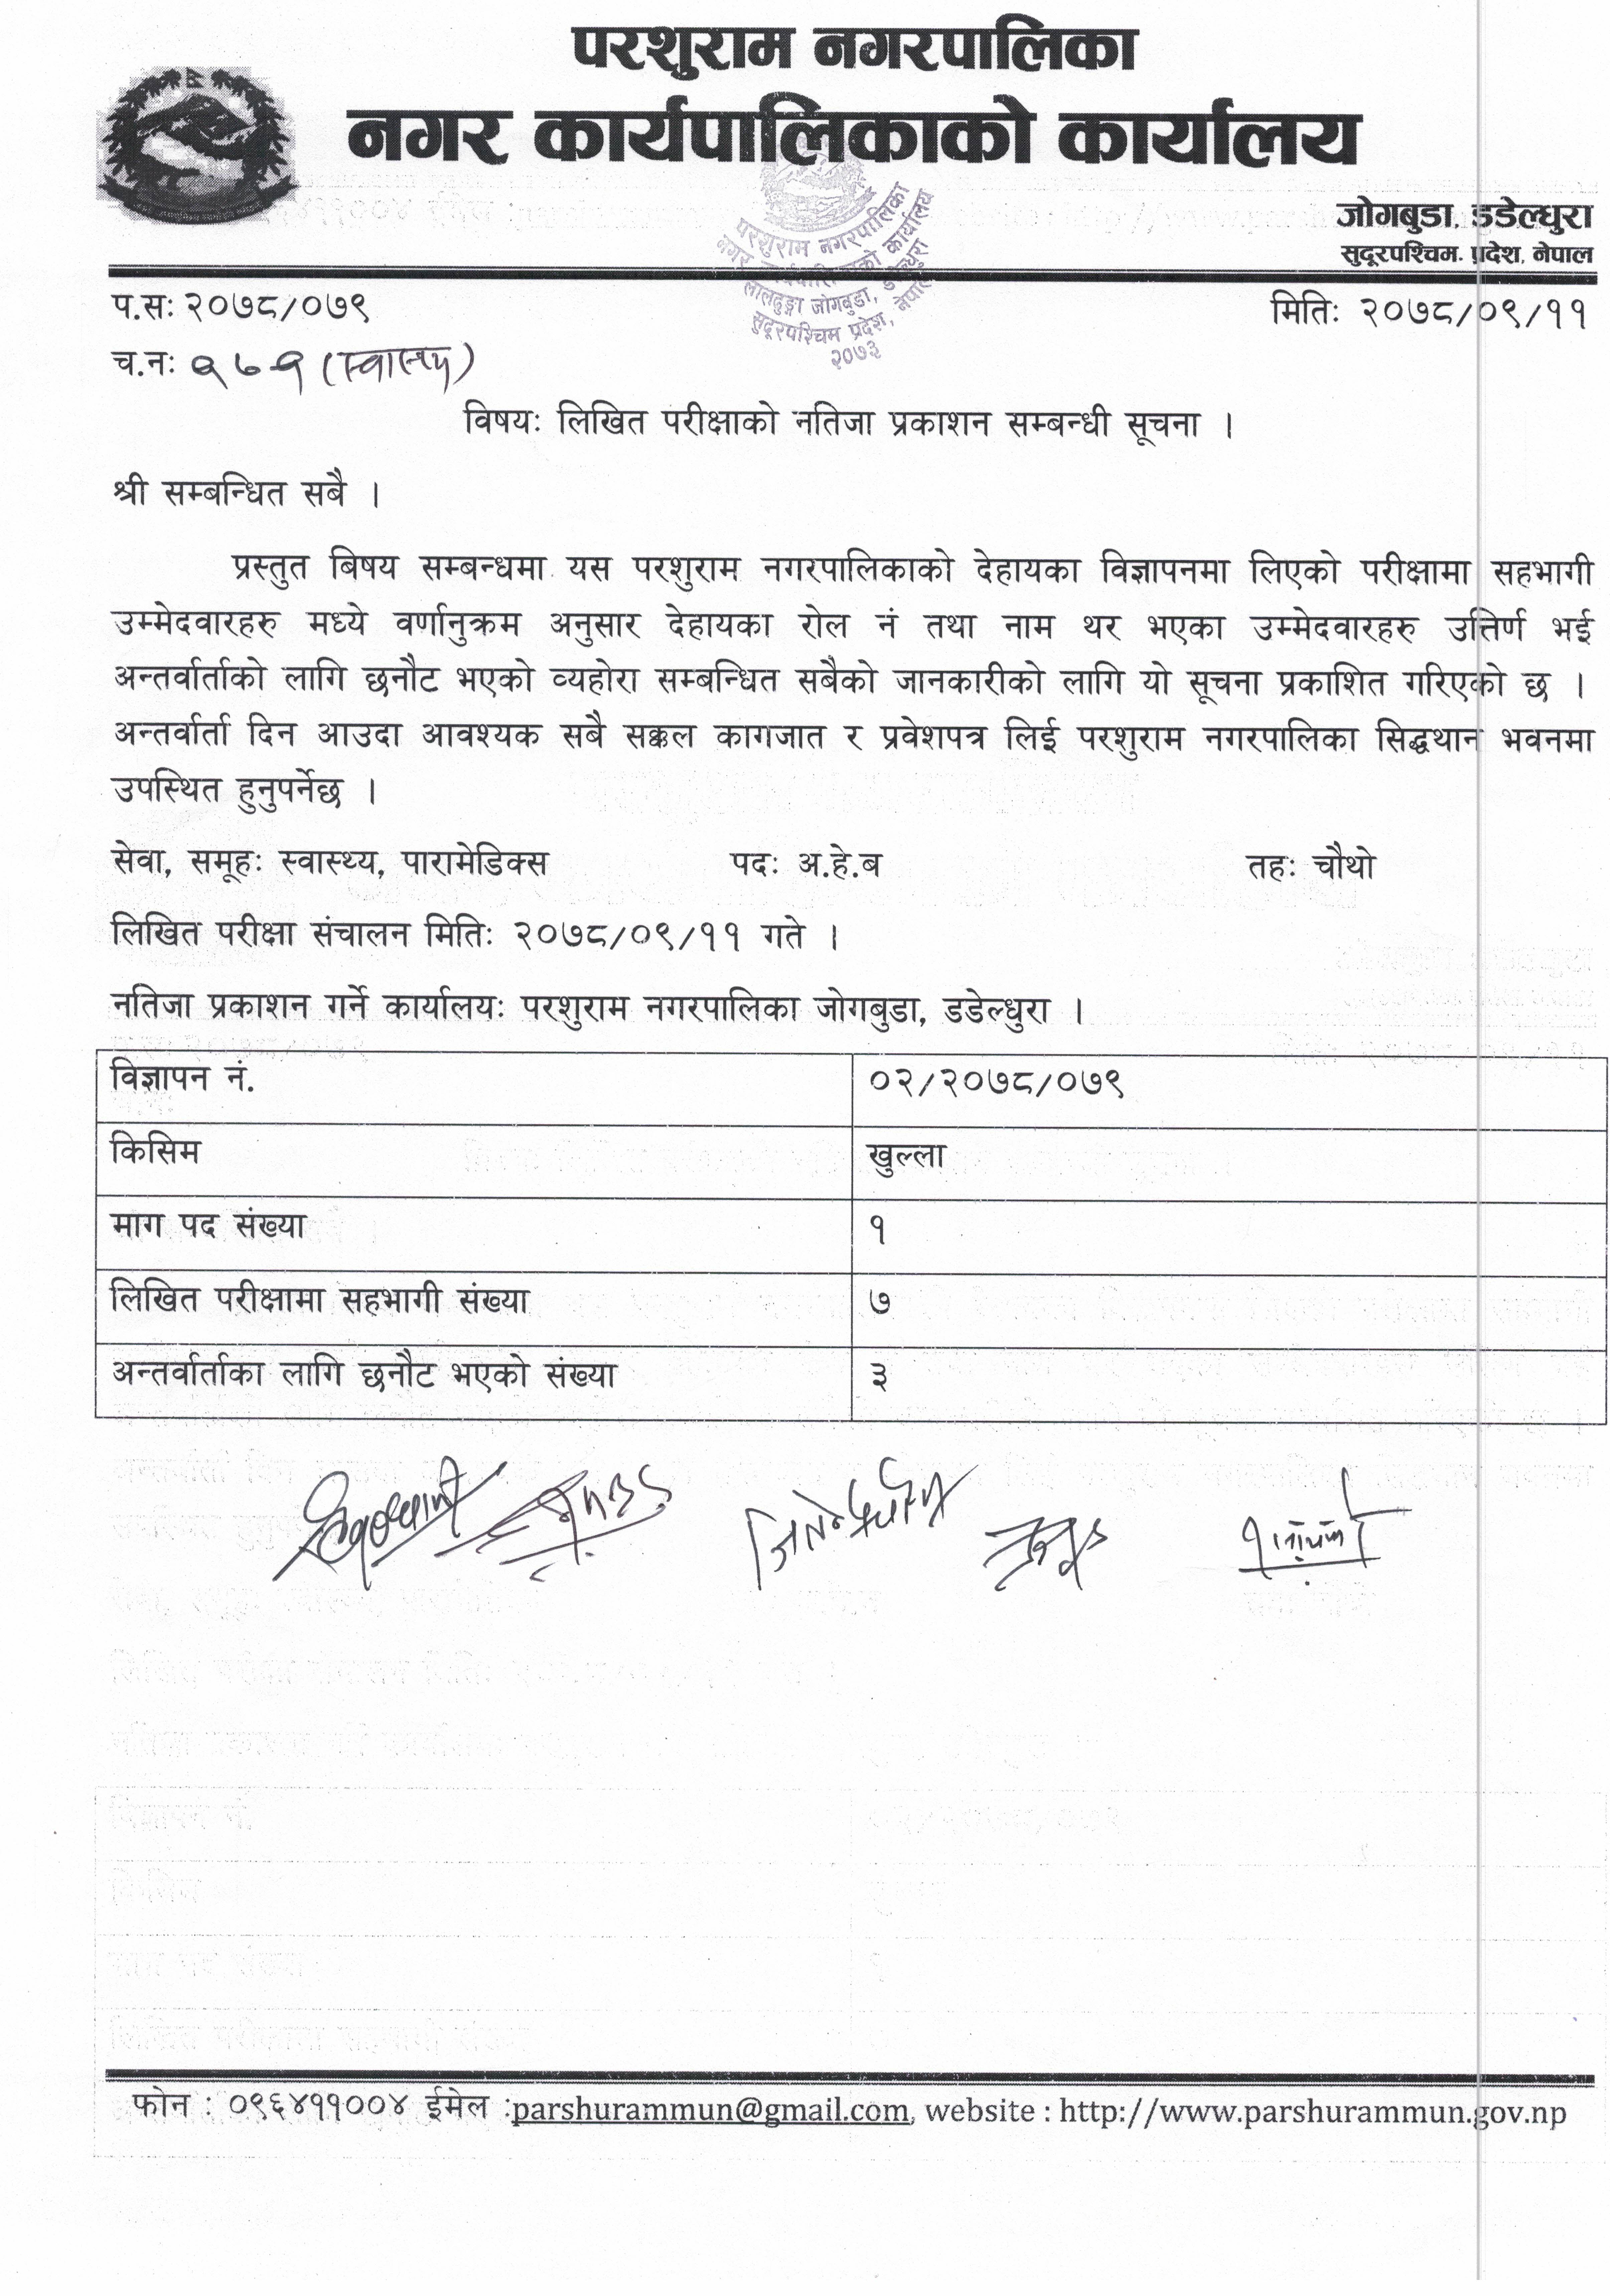 परशुराम नगरपालिका
नगर कार्यपालिकाको कार्यालय
जोगबुडा, डडेल्धुरा
सुदूरपश्चिम. प्रदेश, नेपाल
परशुराम नगरपालिका
नगर कार्यपालिकाको कार्यालय
जोगबुडा, डडेल्धुरा
सुदूरपश्चिम प्रदेश, नेपाल
२०७३
प.सः २०७८/०७९
मितिः २०७८/०९/११
च.नः २७१ (स्वास्थ्य)
विषयः लिखित परीक्षाको नतिजा प्रकाशन सम्बन्धी सूचना ।
श्री सम्बन्धित सबै ।
प्रस्तुत बिषय सम्बन्धमा यस परशुराम नगरपालिकाको देहायका विज्ञापनमा लिएको परीक्षामा सहभागी
उम्मेदवारहरु मध्ये वर्णानुक्रम अनुसार देहायका रोल नं तथा नाम थर भएका उम्मेदवारहरु उत्तिर्ण भई
अन्तर्वार्ताको लागि छनौट भएको व्यहोरा सम्बन्धित सबैको जानकारीको लागि यो सूचना प्रकाशित गरिएको छ ।
अन्तर्वार्ता दिन आउदा आवश्यक सबै सक्कल कागजात र प्रवेशपत्र लिई परशुराम नगरपालिका सिद्धथान भवनमा
उपस्थित हुनुपर्नेछ ।
सेवा, समूहः स्वास्थ्य, पारामेडिक्स पदः अ.हे.ब तहः चौथो
लिखित परीक्षा संचालन मितिः २०७८/०९/११ गते ।
नतिजा प्रकाशन गर्ने कार्यालयः परशुराम नगरपालिका जोगबुडा, डडेल्धुरा ।
विज्ञापन नं. ०२/२०७८/०७९
किसिम खुल्ला
माग पद संख्या १
लिखित परीक्षामा सहभागी संख्या ७
अन्तर्वार्ताका लागि छनौट भएको संख्या ३
फोन : ०९६४११००४ ईमेल :parshurammun@gmail.com, website : http://www.parshurammun.gov.np